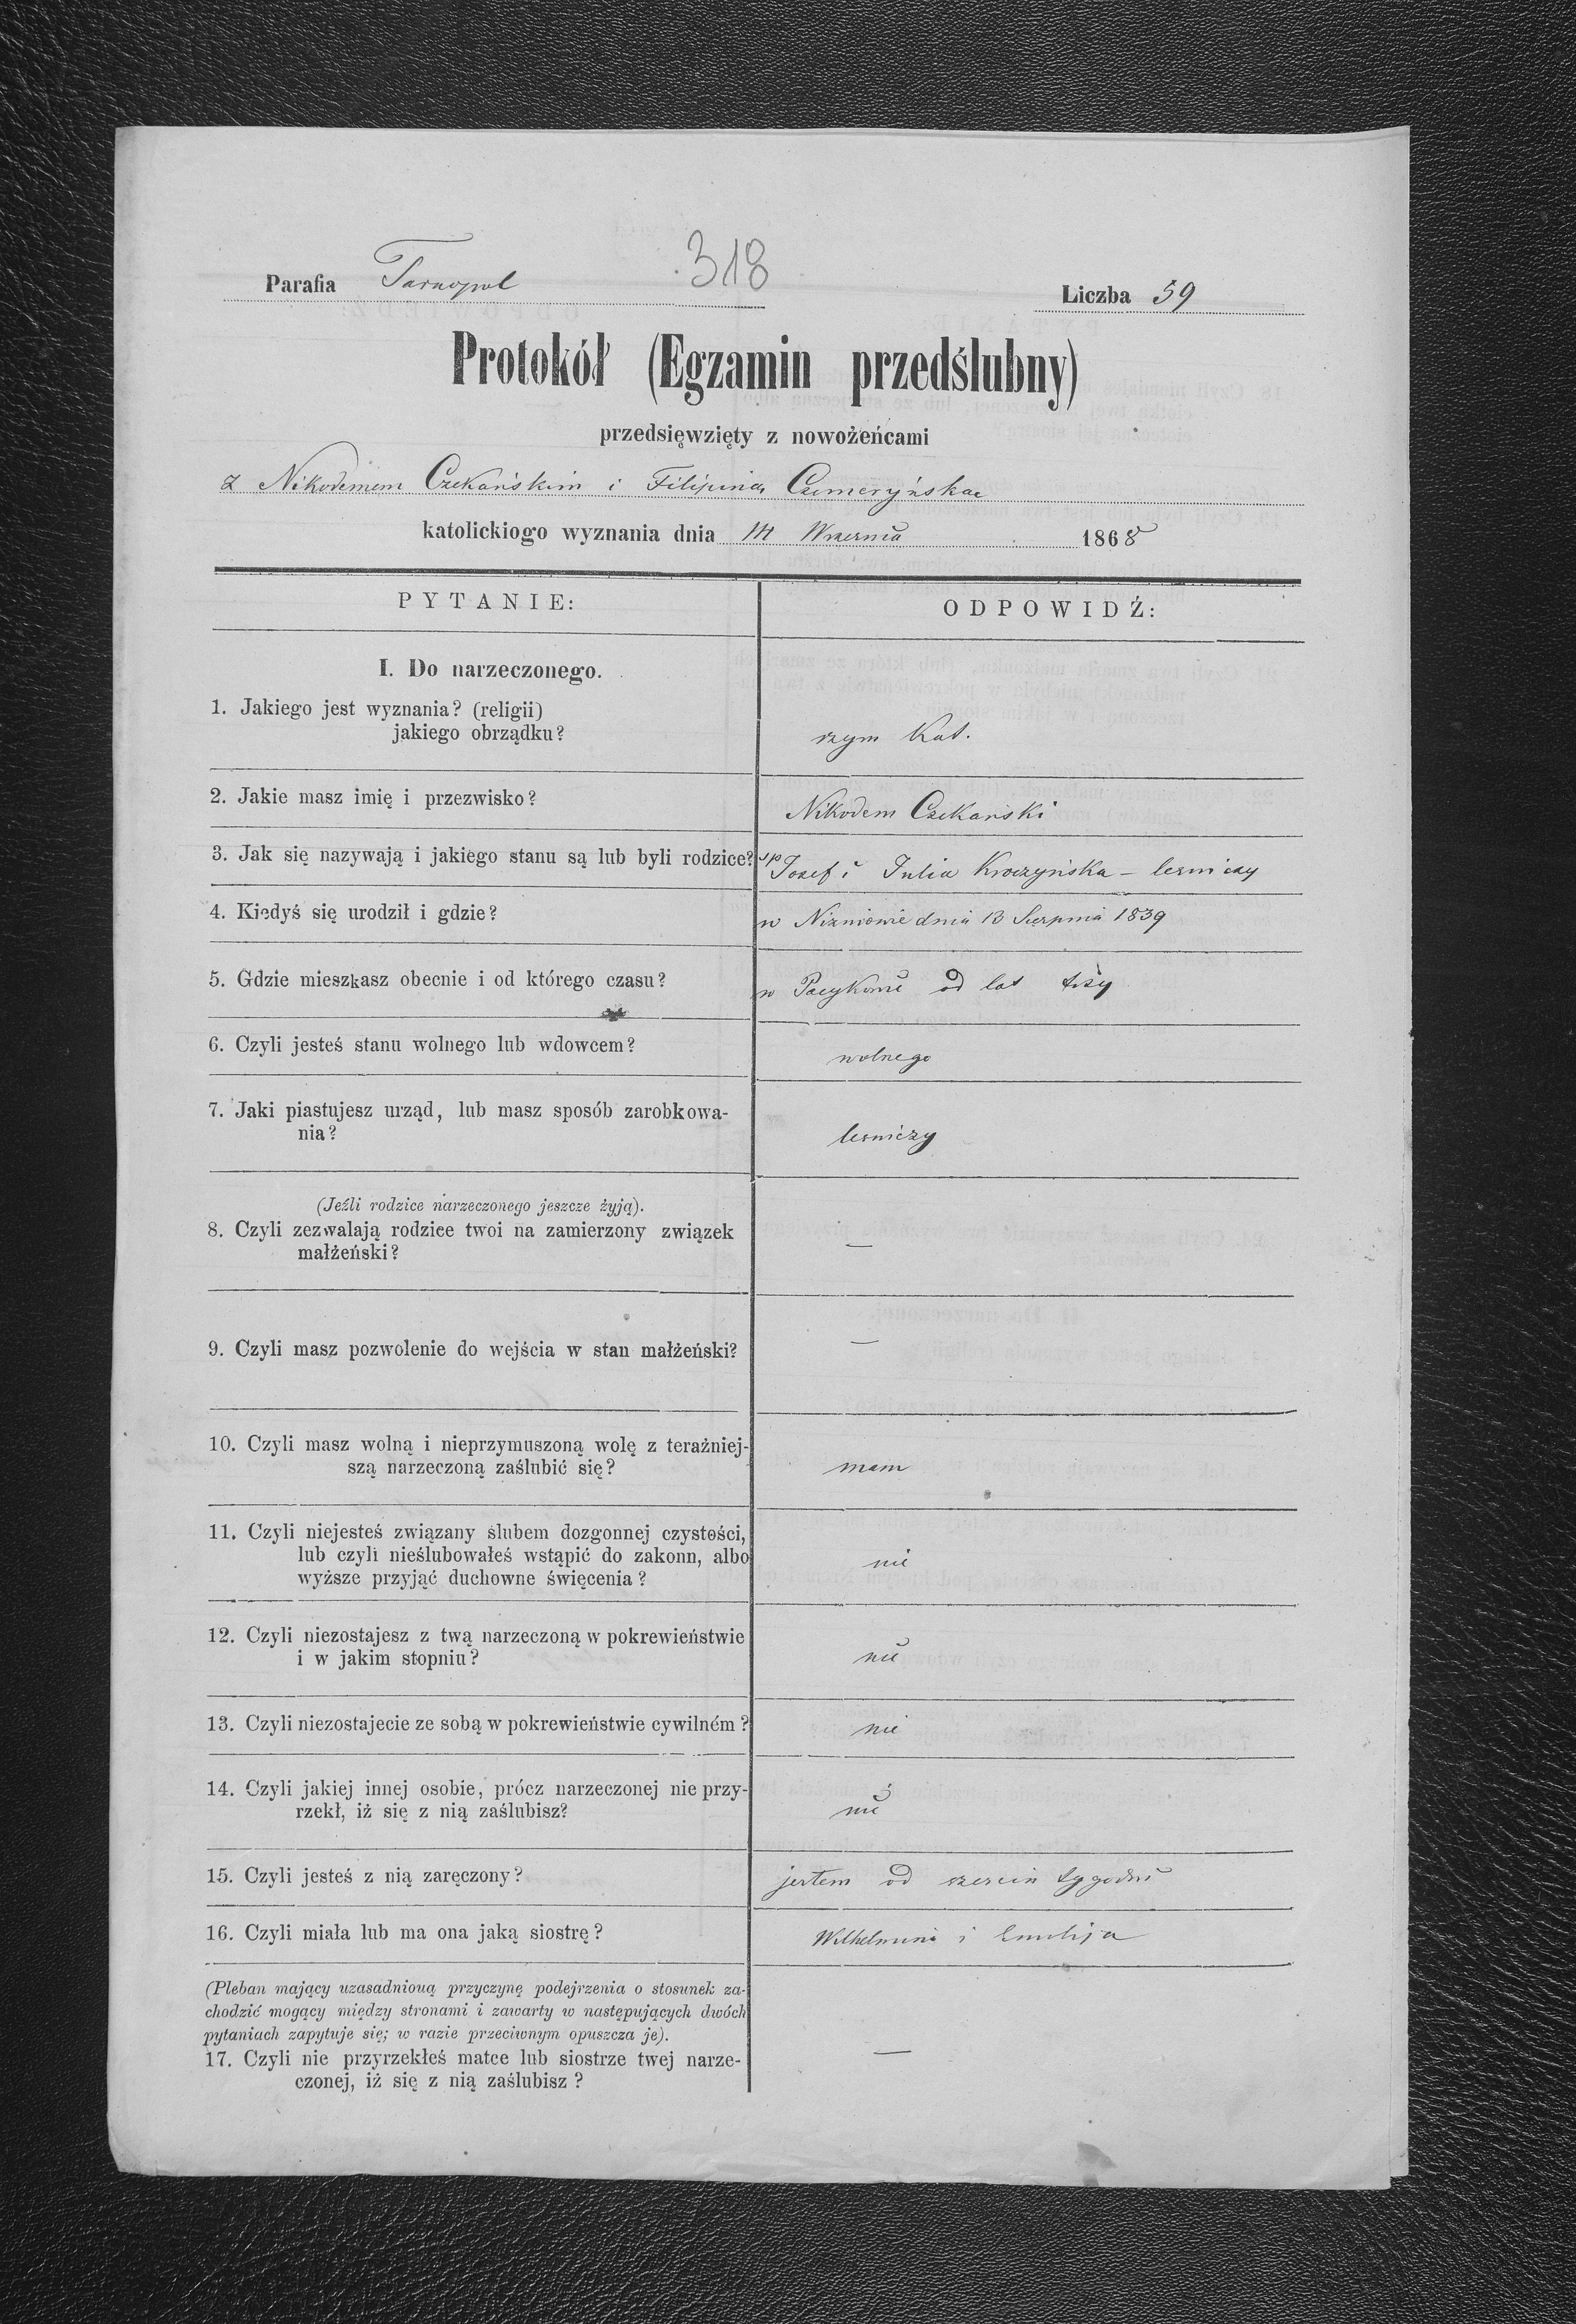 318
Parafia Tarnopol
Liczba 59
Protokół (Egzamin przedślubny)
przedsięwzięty z nowożeńcami
z Nikodemem Czekańskim i Filipiną Czemeryńską
katolickiogo wyznania dnia 14 Września 1868
PYTANIE:
ODPOWIDŹ:
I. Do narzeczonego.
1. Jakiego jest wyznania? (religii)
jakiego obrządku?
rzym Kat.
2. Jakie masz imię i przezwisko?
Nikodem Czekański
3. Jak się nazywają i jakiego stanu są lub byli rodzice?
sp Josef i Julia Kroczyńska – lesniczy
4. Kiedyś się urodził i gdzie?
w Niżniowie dnia 13 Sierpnia 1839
5. Gdzie mieszkasz obecnie i od którego czasu?
w Pacykowie od lat trzy
6. Czyli jesteś stanu wolnego lub wdowcem?
wolnego
7. Jaki piastujesz urząd, lub masz sposób zarobkowa-
nia?
lesniczy
(Jeźli rodzice narzeczonego jeszcze żyją).
8. Czyli zezwalają rodzice twoi na zamierzony związek
małżeński?
—
9. Czyli masz pozwolenie do wejścia w stan małżeński?
—
10. Czyli masz wolną i nieprzymuszoną wolę z teraźniej-
szą narzeczoną zaślubić się?
mam
11. Czyli niejesteś związany ślubem dozgonnej czystości,
lub czyli nieślubowałeś wstąpić do zakonn, albo
wyższe przyjąć duchowne święcenia?
nie
12. Czyli niezostajesz z twą narzeczoną w pokrewieństwie
i w jakim stopniu?
nie
13. Czyli niezostajecie ze sobą w pokrewieństwie cywilném?
nie
14. Czyli jakiej innej osobie, prócz narzeczonej nie przy-
rzekł, iż się z nią zaślubisz?
nie
15. Czyli jesteś z nią zaręczony?
jestem od szesciu tygodni
16. Czyli miała lub ma ona jaką siostrę?
Wilhelmina i Emilija
(Pleban mający uzasadnioną przyczynę podejrzenia o stosunek za-
chodzić mogący między stronami i zawarty w następujących dwóch
pytaniach zapytuje się; w razie przeciwnym opuszcza je).
17. Czyli nie przyrzekłeś matce lub siostrze twej narze-
czonej, iż się z nią zaślubisz?
—